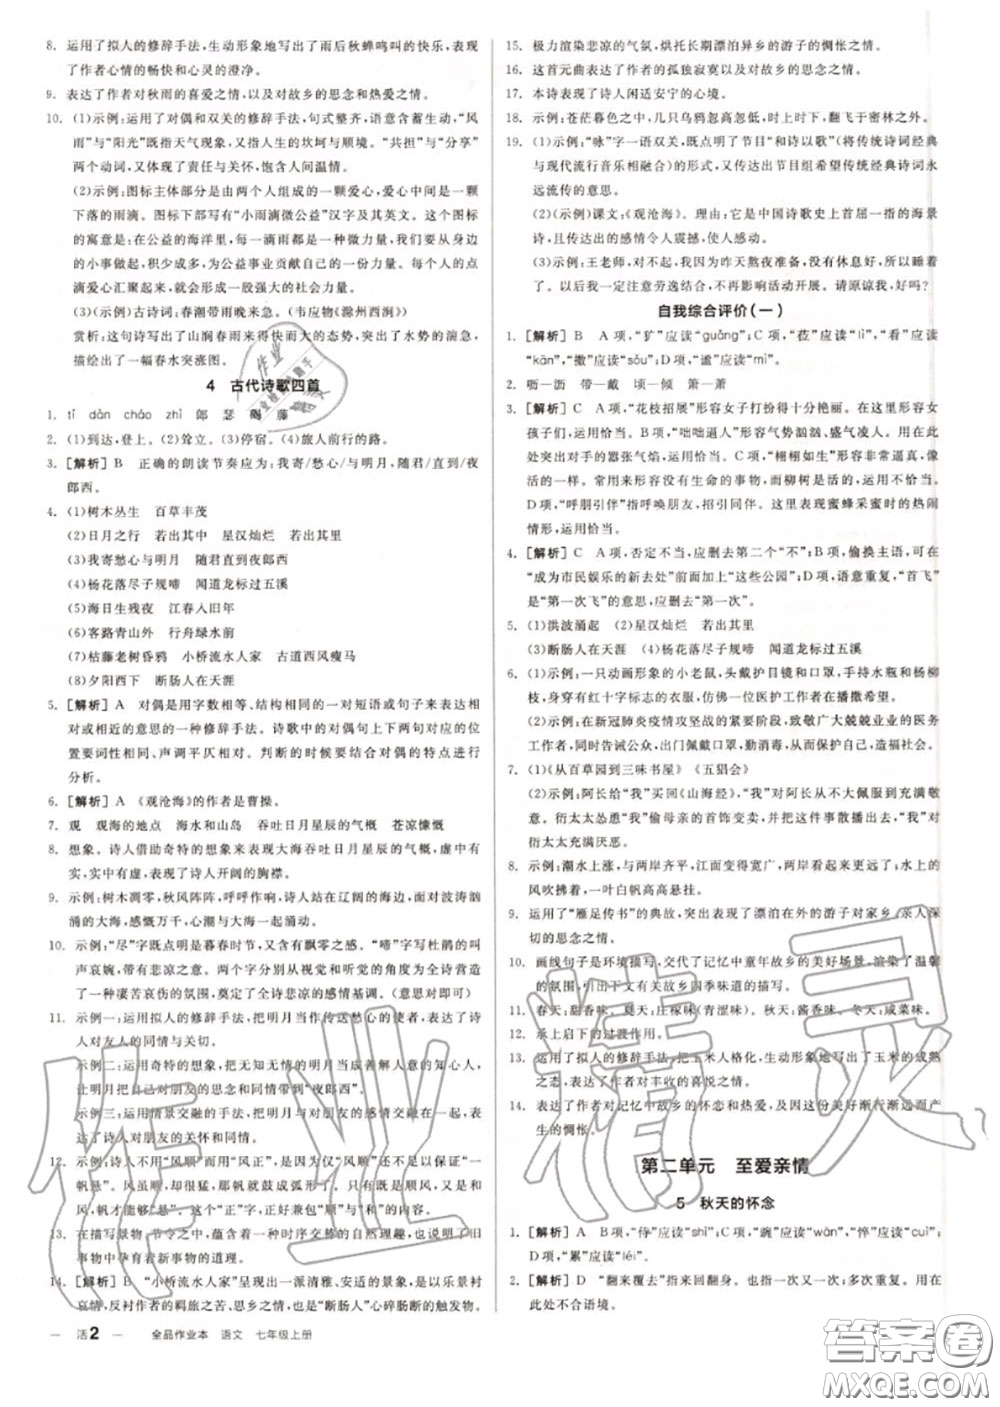 8. 运用了拟人的修辞手法,生动形象地写出了雨后秋蝉鸣叫的快乐,表现
了作者心情的畅快和心灵的澄净。
9. 表达了作者对秋雨的喜爱之情,以及对故乡的思念和热爱之情。
10. (1)示例:运用了对偶和双关的修辞手法,句式整齐,语意含蓄生动,“风
雨”与“阳光”既指天气现象,又指人生的坎坷与顺境。“共担”与“分享”
两个动词,又体现了责任与关怀,饱含人间温情。
(2)示例:图标主体部分是由两个人组成的一颗爱心,爱心中间是一颗
下落的雨滴。图标下部写有“小雨滴微公益”汉字及其英文。这个图标
的寓意是:在公益的海洋里,每一滴雨都是一种微力量,我们要从身边
的小事做起,积少成多,为公益事业贡献自己的一份力量。每个人的点
滴爱心汇聚起来,就会形成一股强大的社会力量。
(3)(示例)古诗词:春潮带雨晚来急。(韦应物《滁州西涧》)
赏析:这句诗写出了山涧春雨来得快而大的气势,突出了水势的湍急,
描绘出了一幅春水突涨图。
4 古代诗歌四首
1. tǐ dàn cháo zhì 郎 瑟 碣 藤
2. (1)到达,登上。(2)耸立。(3)停宿。(4)旅人前行的路。
3. [解析] B 正确的朗读节奏应为:我寄/愁心/与明月,随君/直到/夜
郎西。
4. (1)树木丛生 百草丰茂
(2)日月之行 若出其中 星汉灿烂 若出其里
(3)我寄愁心与明月 随君直到夜郎西
(4)杨花落尽子规啼 闻道龙标过五溪
(5)海日生残夜 江春入旧年
(6)客路青山外 行舟绿水前
(7)枯藤老树昏鸦 小桥流水人家 古道西风瘦马
(8)夕阳西下 断肠人在天涯
5. [解析] A 对偶是用字数相等、结构相同的一对短语或句子来表达相
对或相近的意思的一种修辞手法。诗歌中的对偶句上下两句对应的位
置要词性相同、声调平仄相对。判断的时候要结合对偶的特点进行
分析。
6. [解析] A 《观沧海》的作者是曹操。
7. 观 观海的地点 海水和山岛 吞吐日月星辰的气概 苍凉慷慨
8. 想象。诗人借助奇特的想象来表现大海吞吐日月星辰的气概,虚中有
实,实中有虚,表达了诗人开阔的胸襟。
9. 示例:树木凋零,秋风阵阵,呼呼作响,诗人站在辽阔的海边,面对波涛汹
涌的大海,感慨万千,心潮与大海一起涌动。
10. 示例:“尽”字既点明是暮春时节,又含有飘零之感。“啼”字写杜鹃的叫
声哀婉,带有悲凉的意味。两个字分别从视觉和听觉的角度为全诗营造
了一种凄苦哀伤的氛围,奠定了全诗悲凉的感情基调。(意思对即可)
11. 示例一:运用拟人的修辞手法,把明月当作传送愁心的使者,表达了诗
人对友人的同情与关切。
示例二:运用奇特的想象,把无知无情的明月当成善解人意的知心人,
让明月把自己对朋友的思念和同情带到“夜郎西”。
示例三:运用情景交融的手法,把明月与深挚的感情交融在一起,表
达了诗人对朋友的关怀和同情。
12. 示例:诗人不用“风顺”而用“风正”,是因为仅仅“风顺”还不足以保证“一
帆悬”。风虽顺,却很猛,那帆就鼓成弧形了。只有既是顺风,又是和
风,帆才能够“悬”。这个“正”字,正好兼包“顺”和“和”的内容。
13. 在描写景物、节令之中,蕴含着一种自然的理趣,写出了旧
事物中孕育着新事物的道理。
14. [解析] B “小桥流水人家”呈现出一派清雅、安适的景象,是以乐景衬
哀情,反衬作者的羁旅之苦、思乡之情,也是“断肠人”心碎肠断的触发物。
活2 全品作业本 语文 七年级上册
15. 极力渲染悲凉的气氛,烘托长期漂泊异乡的游子的惆怅之情。
16. 这首元曲表达了作者的孤独寂寞以及对故乡的思念之情。
17. 本诗表现了诗人闲适安宁的心境。
18. 示例:苍茫暮色之中,几只乌鸦忽高忽低,时上时下,翻飞于密林之外。
19. (1)示例:“咏”字一语双关,既点明了节目“和诗以歌”(将传统诗词经典
与现代流行音乐相融合)的形式,又传达出节目组希望传统经典诗词永
远流传的意思。
(2)(示例)课文:《观沧海》。理由:它是中国诗歌史上首屈一指的海景
诗,且传达出的感情令人震撼,使人感动。
(3)示例:王老师,对不起,我因为昨天熬夜准备,没有休息好,所以睡着
了。以后我一定注意劳逸结合,不再影响活动开展。请原谅我,好吗?
自我综合评价(一)
1. [解析] B A项,“犷”应读“guǎng”;C项,“莅”应读“lì”,“看”应读
“kān”,“擞”应读“sǒu”;D项,“谧”应读“mì”。
2. 呖—沥 带—戴 顷—倾 箫—萧
3. [解析] C A项,“花枝招展”形容女子打扮得十分艳丽。在这里形容女
孩子们,运用恰当。B项,“咄咄逼人”形容气势汹汹、盛气凌人。用在此
处突出对手的嚣张气焰,运用恰当。C项,“栩栩如生”形容非常逼真,像
活的一样。常用来形容没有生命的事物,而柳树是活的,运用不恰当。
D项,“呼朋引伴”指呼唤朋友,招引同伴。这里表现蜜蜂采蜜时的热闹
情形,运用恰当。
4. [解析] C A项,否定不当,应删去第二个“不”;B项,偷换主语,可在
“成为市民娱乐的新去处”前面加上“这些公园”;D项,语意重复,“首飞”
是“第一次飞”的意思,应删去“第一次”。
5. (1)洪波涌起 (2)星汉灿烂 若出其里
(3)断肠人在天涯 (4)杨花落尽子规啼 闻道龙标过五溪
6. (1)示例:一只动画形象的小老鼠,头戴护目镜和口罩,手持水瓶和杨柳
枝,身穿有红十字标志的衣服,仿佛一位医护工作者在播撒希望。
(2)示例:在新冠肺炎疫情攻坚战的紧要阶段,致敬广大兢兢业业的医务
工作者,同时告诫公众,出门佩戴口罩,勤消毒,从而保护自己,造福社会。
7. (1)《从百草园到三味书屋》 《五猖会》
(2)示例:阿长给“我”买《山海经》,“我”对阿长从不大佩服到充满敬意。
衍太太怂恿“我”偷母亲的首饰变卖,并把这件事散播出去,“我”对
衍太太充满厌恶。
8. 示例:潮水上涨,与两岸齐平,江面变得宽广,两岸看起来更远了;水上的
风吹拂着,一叶白帆高高悬挂。
9. 运用了“雁足传书”的典故,突出表现了漂泊在外的游子对家乡、亲人深
切的思念之情。
10. 画线句子是环境描写,交代了记忆中童年故乡的美好场景,渲染了温馨
的氛围,引出下文对故乡四季味道的描写。
11. 春天:甜香味。夏天:庄稼味(青涩味)。秋天:酱香味。冬天:咸菜味。
12. 承上启下的过渡作用。
13. 运用了拟人的修辞手法,把玉米人格化,生动形象地写出了玉米的成熟
之态,表达了作者对丰收的喜悦之情。
14. 表达了作者对记忆中故乡的怀恋和热爱,以及因这份美好渐行渐远而产
生的惆怅。
第二单元 至爱亲情
5 秋天的怀念
1. [解析] A B项,“侍”应读“shì”;C项,“豌”应读“wān”,“悴”应读“cuì”;
D项,“累”应读“léi”。
2. [解析] D “翻来覆去”指来回翻身。也指一次又一次;多次重复。用在此处
不合语境。
作业精灵
答案圈
MXQE.COM